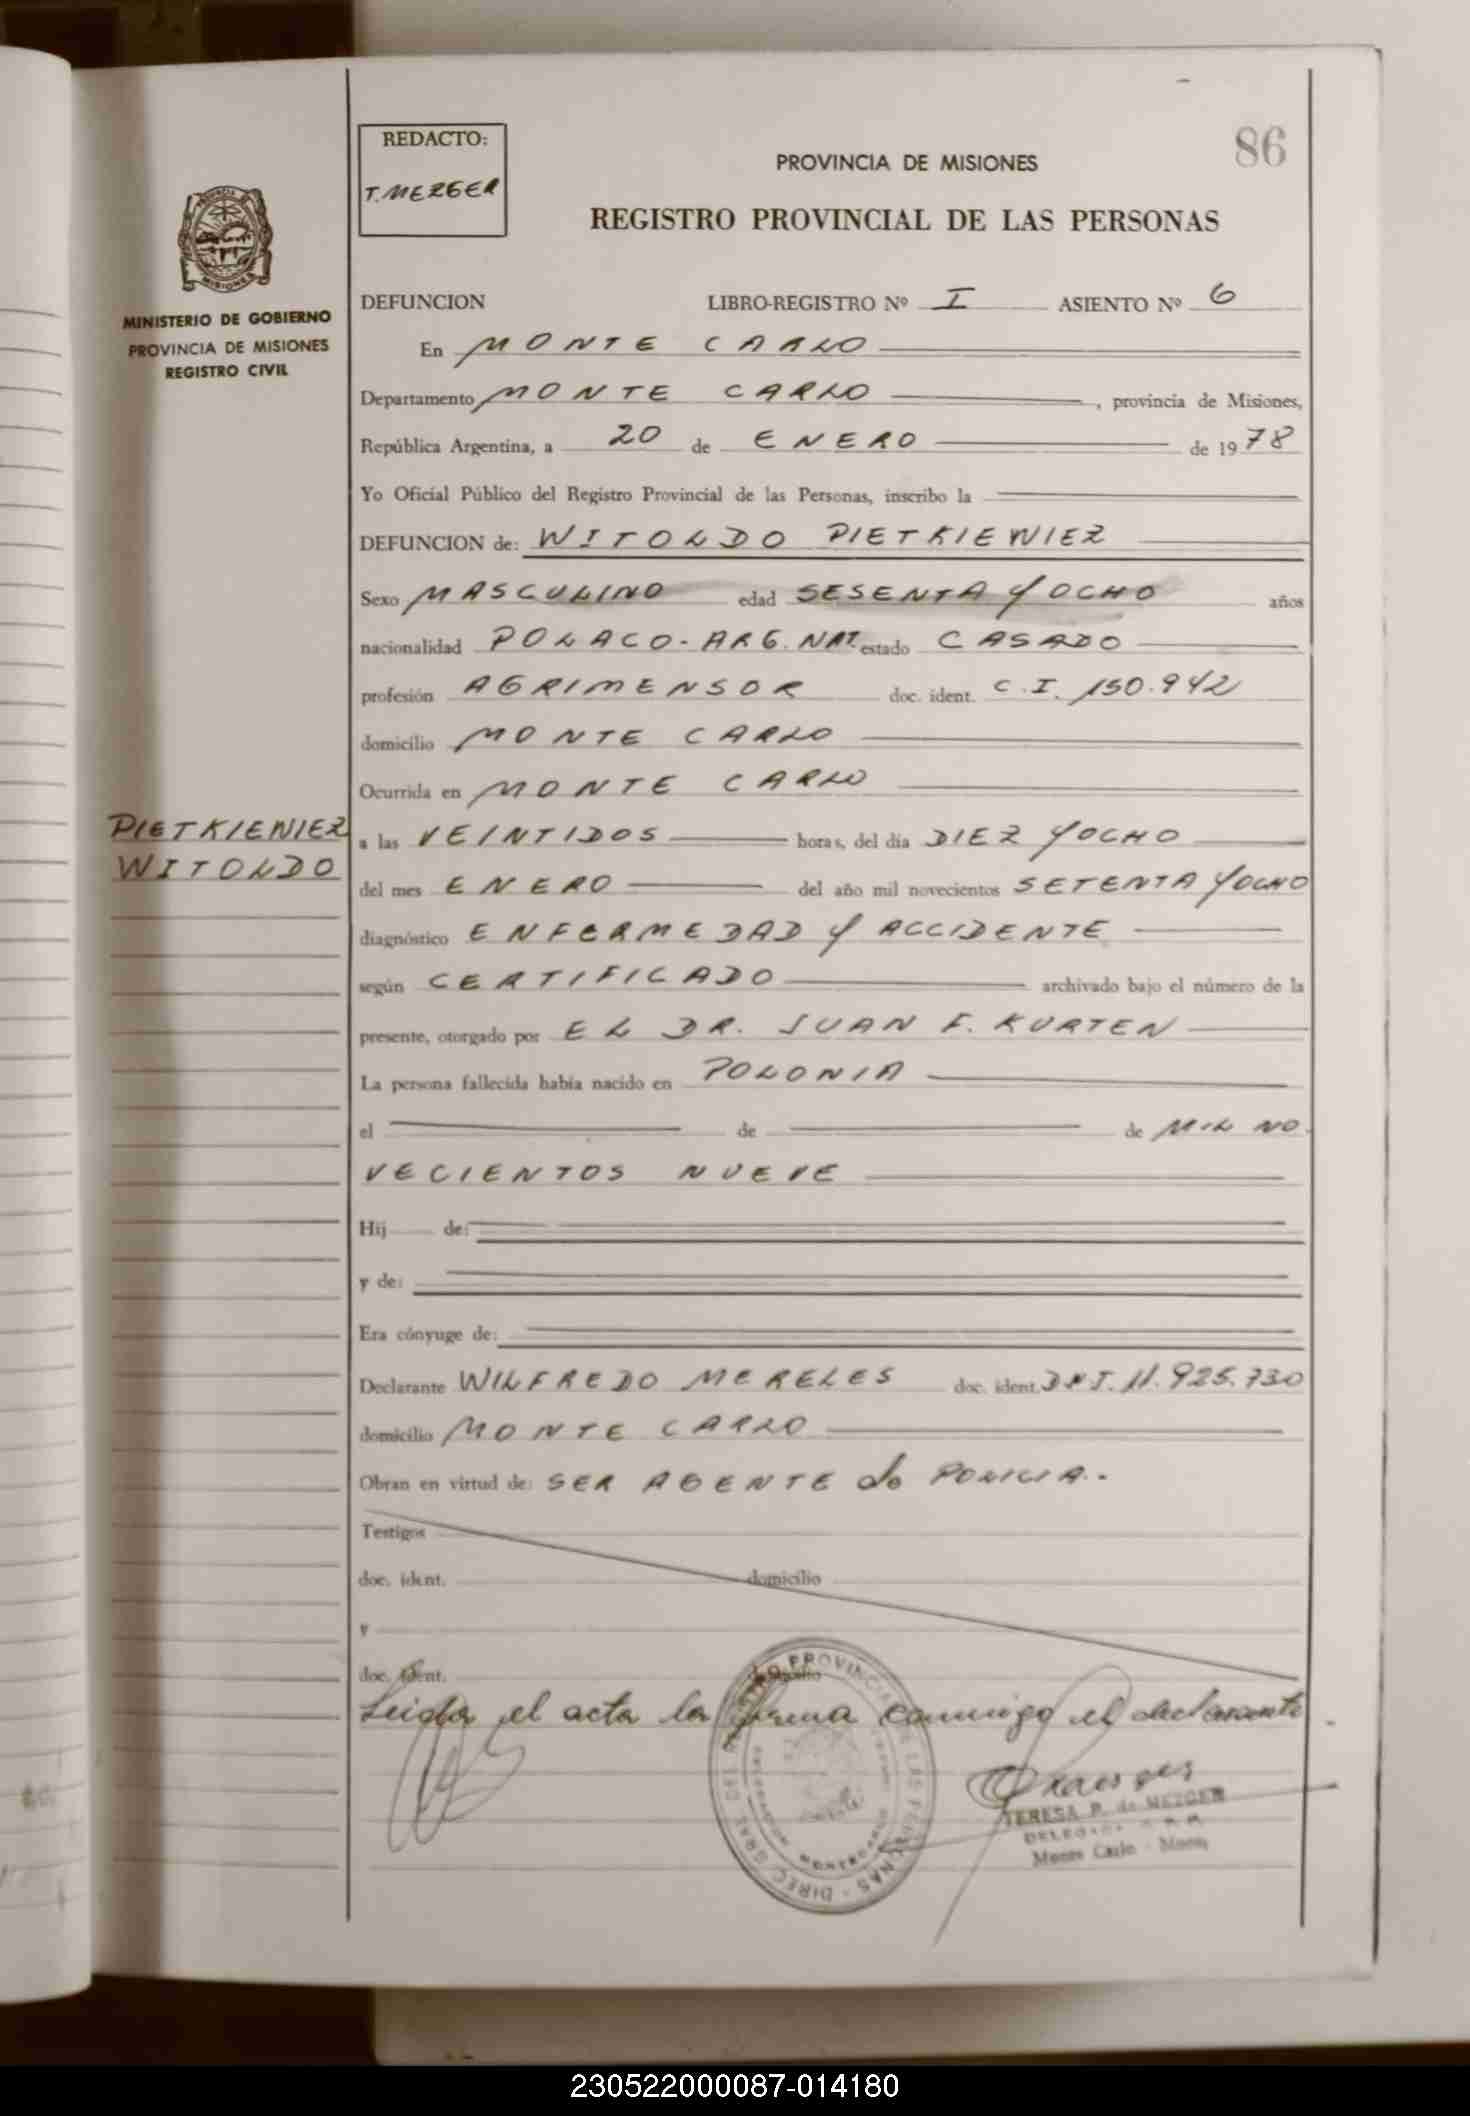 86
REDACTO:
T. MEZGER
PROVINCIA DE MISIONES
REGISTRO PROVINCIAL DE LAS PERSONAS
MISIONES
MINISTERIO DE GOBIERNO
PROVINCIA DE MISIONES
REGISTRO CIVIL
DEFUNCION LIBRO-REGISTRO Nº I ASIENTO Nº 6
En MONTE CARLO
Departamento MONTE CARLO, provincia de Misiones,
República Argentina, a 20 de ENERO de 1978
Yo Oficial Público del Registro Provincial de las Personas, inscribo la
DEFUNCION de: WITOLDO PIETKIEWIEZ
Sexo MASCULINO edad SESENTA Y OCHO años
nacionalidad POLACO-ARG. NAT. estado CASADO
profesión AGRIMENSOR doc. ident. C.I. 150.942
domicilio MONTE CARLO
Ocurrida en MONTE CARLO
PIETKIEWIEZ
WITOLDO
a las VEINTIDOS horas, del día DIEZ Y OCHO
del mes ENERO del año mil novecientos SETENTA Y OCHO
diagnóstico ENFERMEDAD Y ACCIDENTE
según CERTIFICADO archivado bajo el número de la
presente, otorgado por EL DR. JUAN F. KURTEN
La persona fallecida había nacido en POLONIA
el de de MIL NO.
VECIENTOS NUEVE
Hij de:
y de:
Era cónyuge de:
Declarante WILFREDO MERELES doc. ident. DNI. 11.925.730
domicilio MONTE CARLO
Obran en virtud de: SER AGENTE de POLICIA.-
Testigos
doc. ident. domicilio
y
doc. ident. domicilio
Leida el acta la firma conmigo el declarante
TERESA P. de MEZGER
Monte Carlo - Mnes.
230522000087-014180